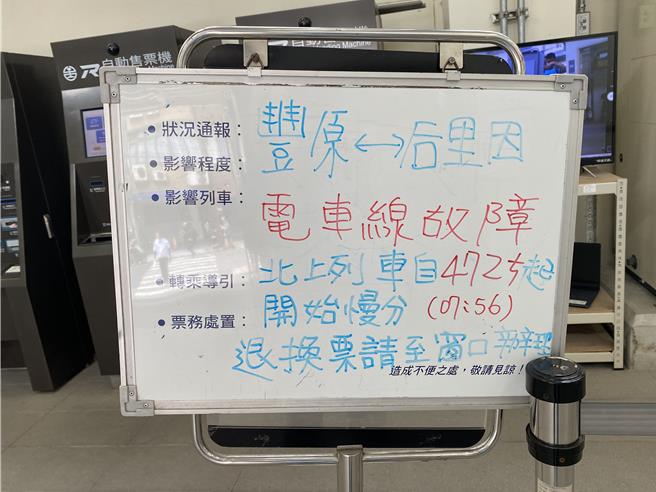 自動售票機
自動售
ting Machine
狀況通報：
豐原↔后里因
影響程度：
影響列車：
電車線故障
轉乘導引：
北上列車自472次起
開始慢分 (07:56)
票務處置：
退換票請至窗口辦理
造成不便之處，敬請見諒！